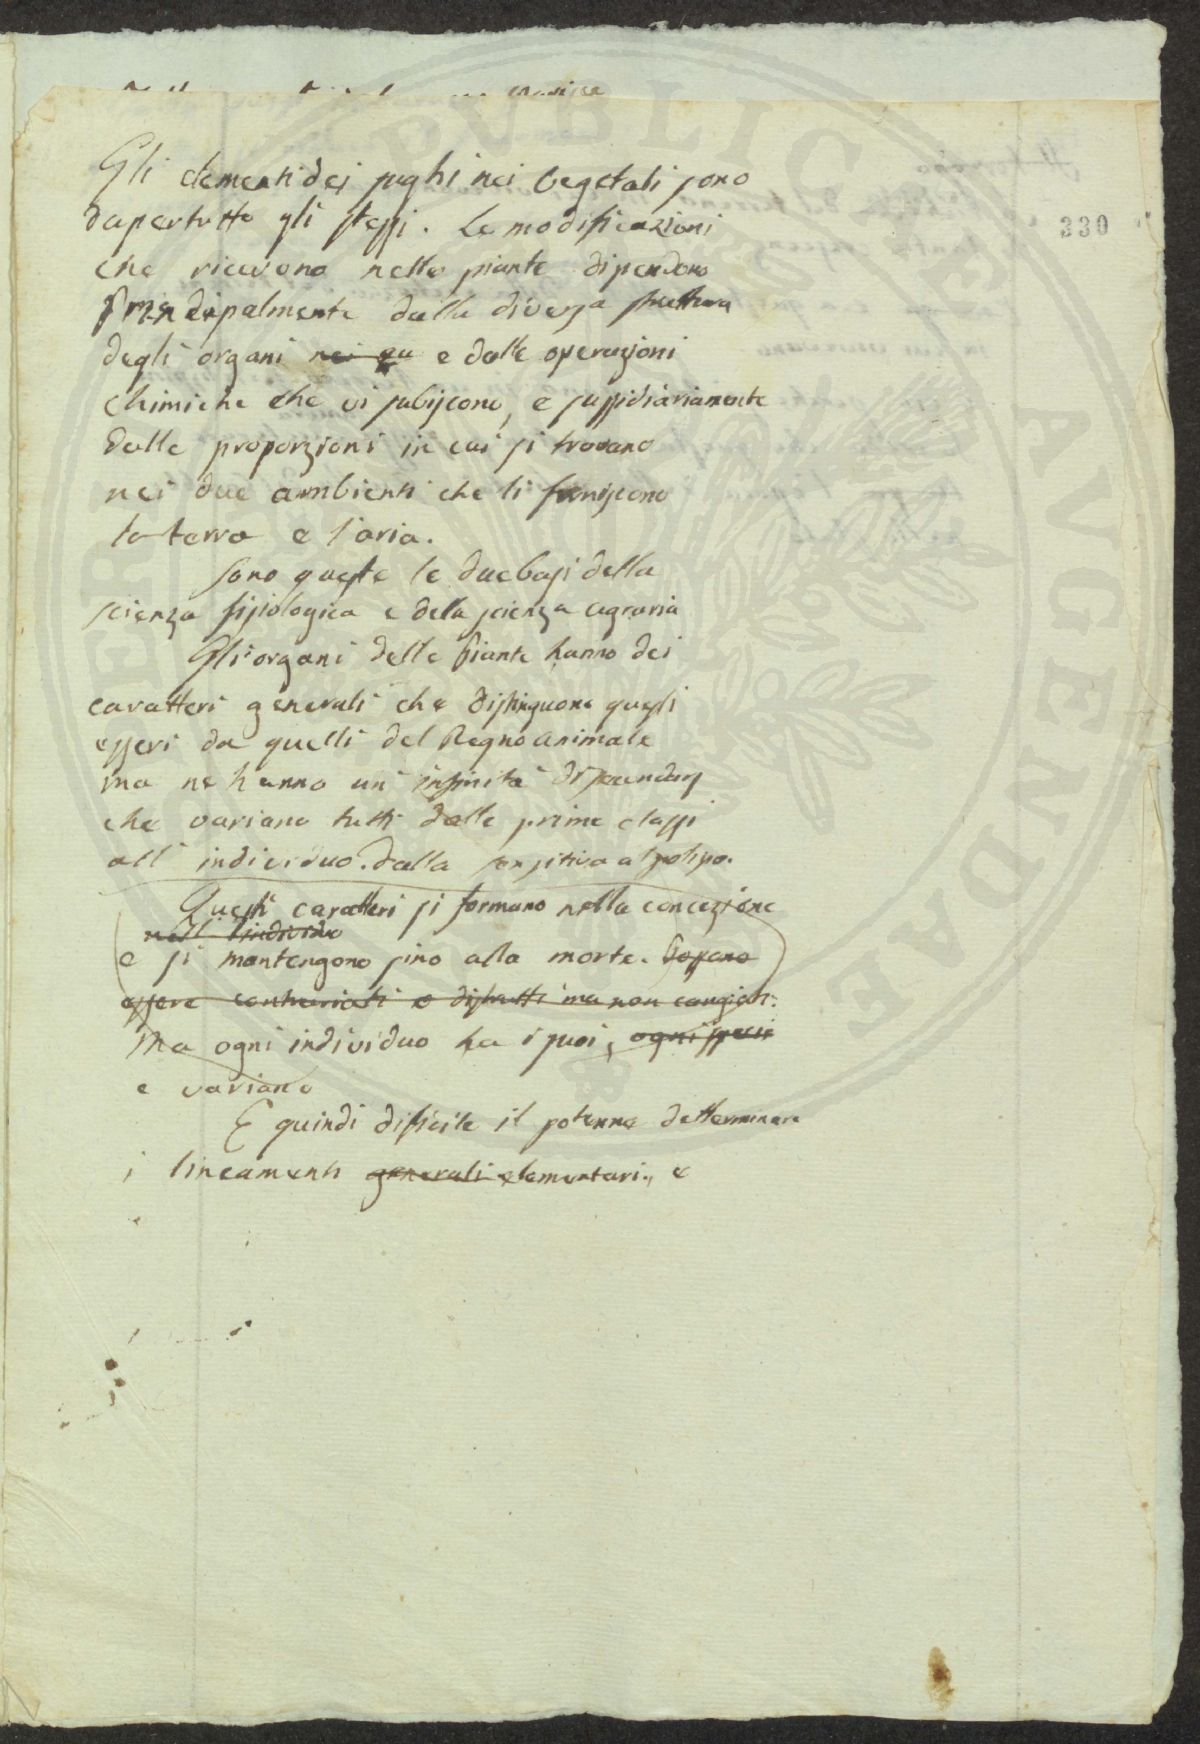 330
Gli elementi dei sughi nei Vegetali sono
dapertutto gli stessi. Le modificazioni
che ricevono nelle piante dipendono
principalmente dalla diversa struttura
degli organi nei e dalle operazioni
chimiche che vi subiscono, e sussidiariamente
dalle proporzioni in cui si trovano
nei due ambienti che li forniscono
la terra e l'aria.
Sono queste le due basi della
scienza fisiologica e della scienza agraria
Gli organi delle Piante hanno dei
caratteri generali che distinguono quegli
esseri da quelli del Regno animale
ma ne hanno un' infinità di secondarj
che variano tutti dalle prime classi
all' individuo. dalla sensitiva al polipo.
Questi caratteri si formano nella concezione
nell' individuo
e si mantengono sino alla morte. Possono
essere contrariati e distrutti ma non cangiati.
Ma ogni individuo ha i suoi, ogni specie
e variano
E quindi dificile il poterne detterminare
i lineamenti generali elementari., e